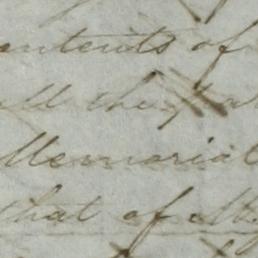 ntents of
all they
Memorial
that of